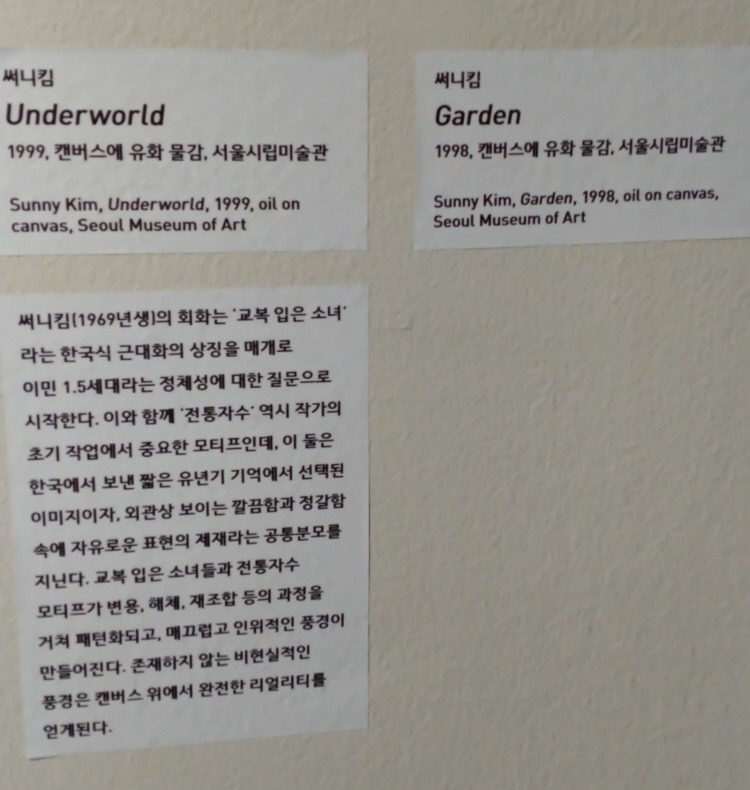 써니킴
Underworld
1999, 캔버스에 유화 물감, 서울시립미술관
Sunny Kim, Underworld, 1999, oil on
canvas, Seoul Museum of Art
써니킴
Garden
1998, 캔버스에 유화 물감, 서울시립미술관
Sunny Kim, Garden, 1998, oil on canvas,
Seoul Museum of Art
써니킴(1969년생)의 회화는 '교복 입은 소녀'
라는 한국식 근대화의 상징을 매개로
이민 1.5세대라는 정체성에 대한 질문으로
시작한다. 이와 함께 '전통자수' 역시 작가의
초기 작업에서 중요한 모티프인데, 이 둘은
한국에서 보낸 짧은 유년기 기억에서 선택된
이미지이자, 외관상 보이는 깔끔함과 정갈함
속에 자유로운 표현의 제재라는 공통분모를
지닌다. 교복 입은 소녀들과 전통자수
모티프가 변용, 해체, 재조합 등의 과정을
거쳐 패턴화되고, 매끄럽고 인위적인 풍경이
만들어진다. 존재하지 않는 비현실적인
풍경은 캔버스 위에서 완전한 리얼리티를
얻게된다.